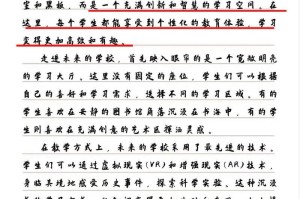 室和黑板，而是一个充满创新和智慧的学习空间。在
这里，每个学生都能享受到个性化的教育体验，学习
变得更加高效和有趣。
走进未来的学校，首先映入眼帘的是一个宽敞明亮
的学习大厅。这里没有固定的座位，学生们可以根据
自己的喜好和需求，选择不同的学习区域。有的学生
喜欢在安静的图书馆角落沉浸在书海中，有的学生
则喜欢在充满创意的艺术区挥洒灵感。
在教学方式上，未来的学校采用了最先进的技术。
学生们可以通过虚拟现实(VR)和增强现实(AR)技术，
身临其境地感受历史事件，探索科学实验。这种沉浸